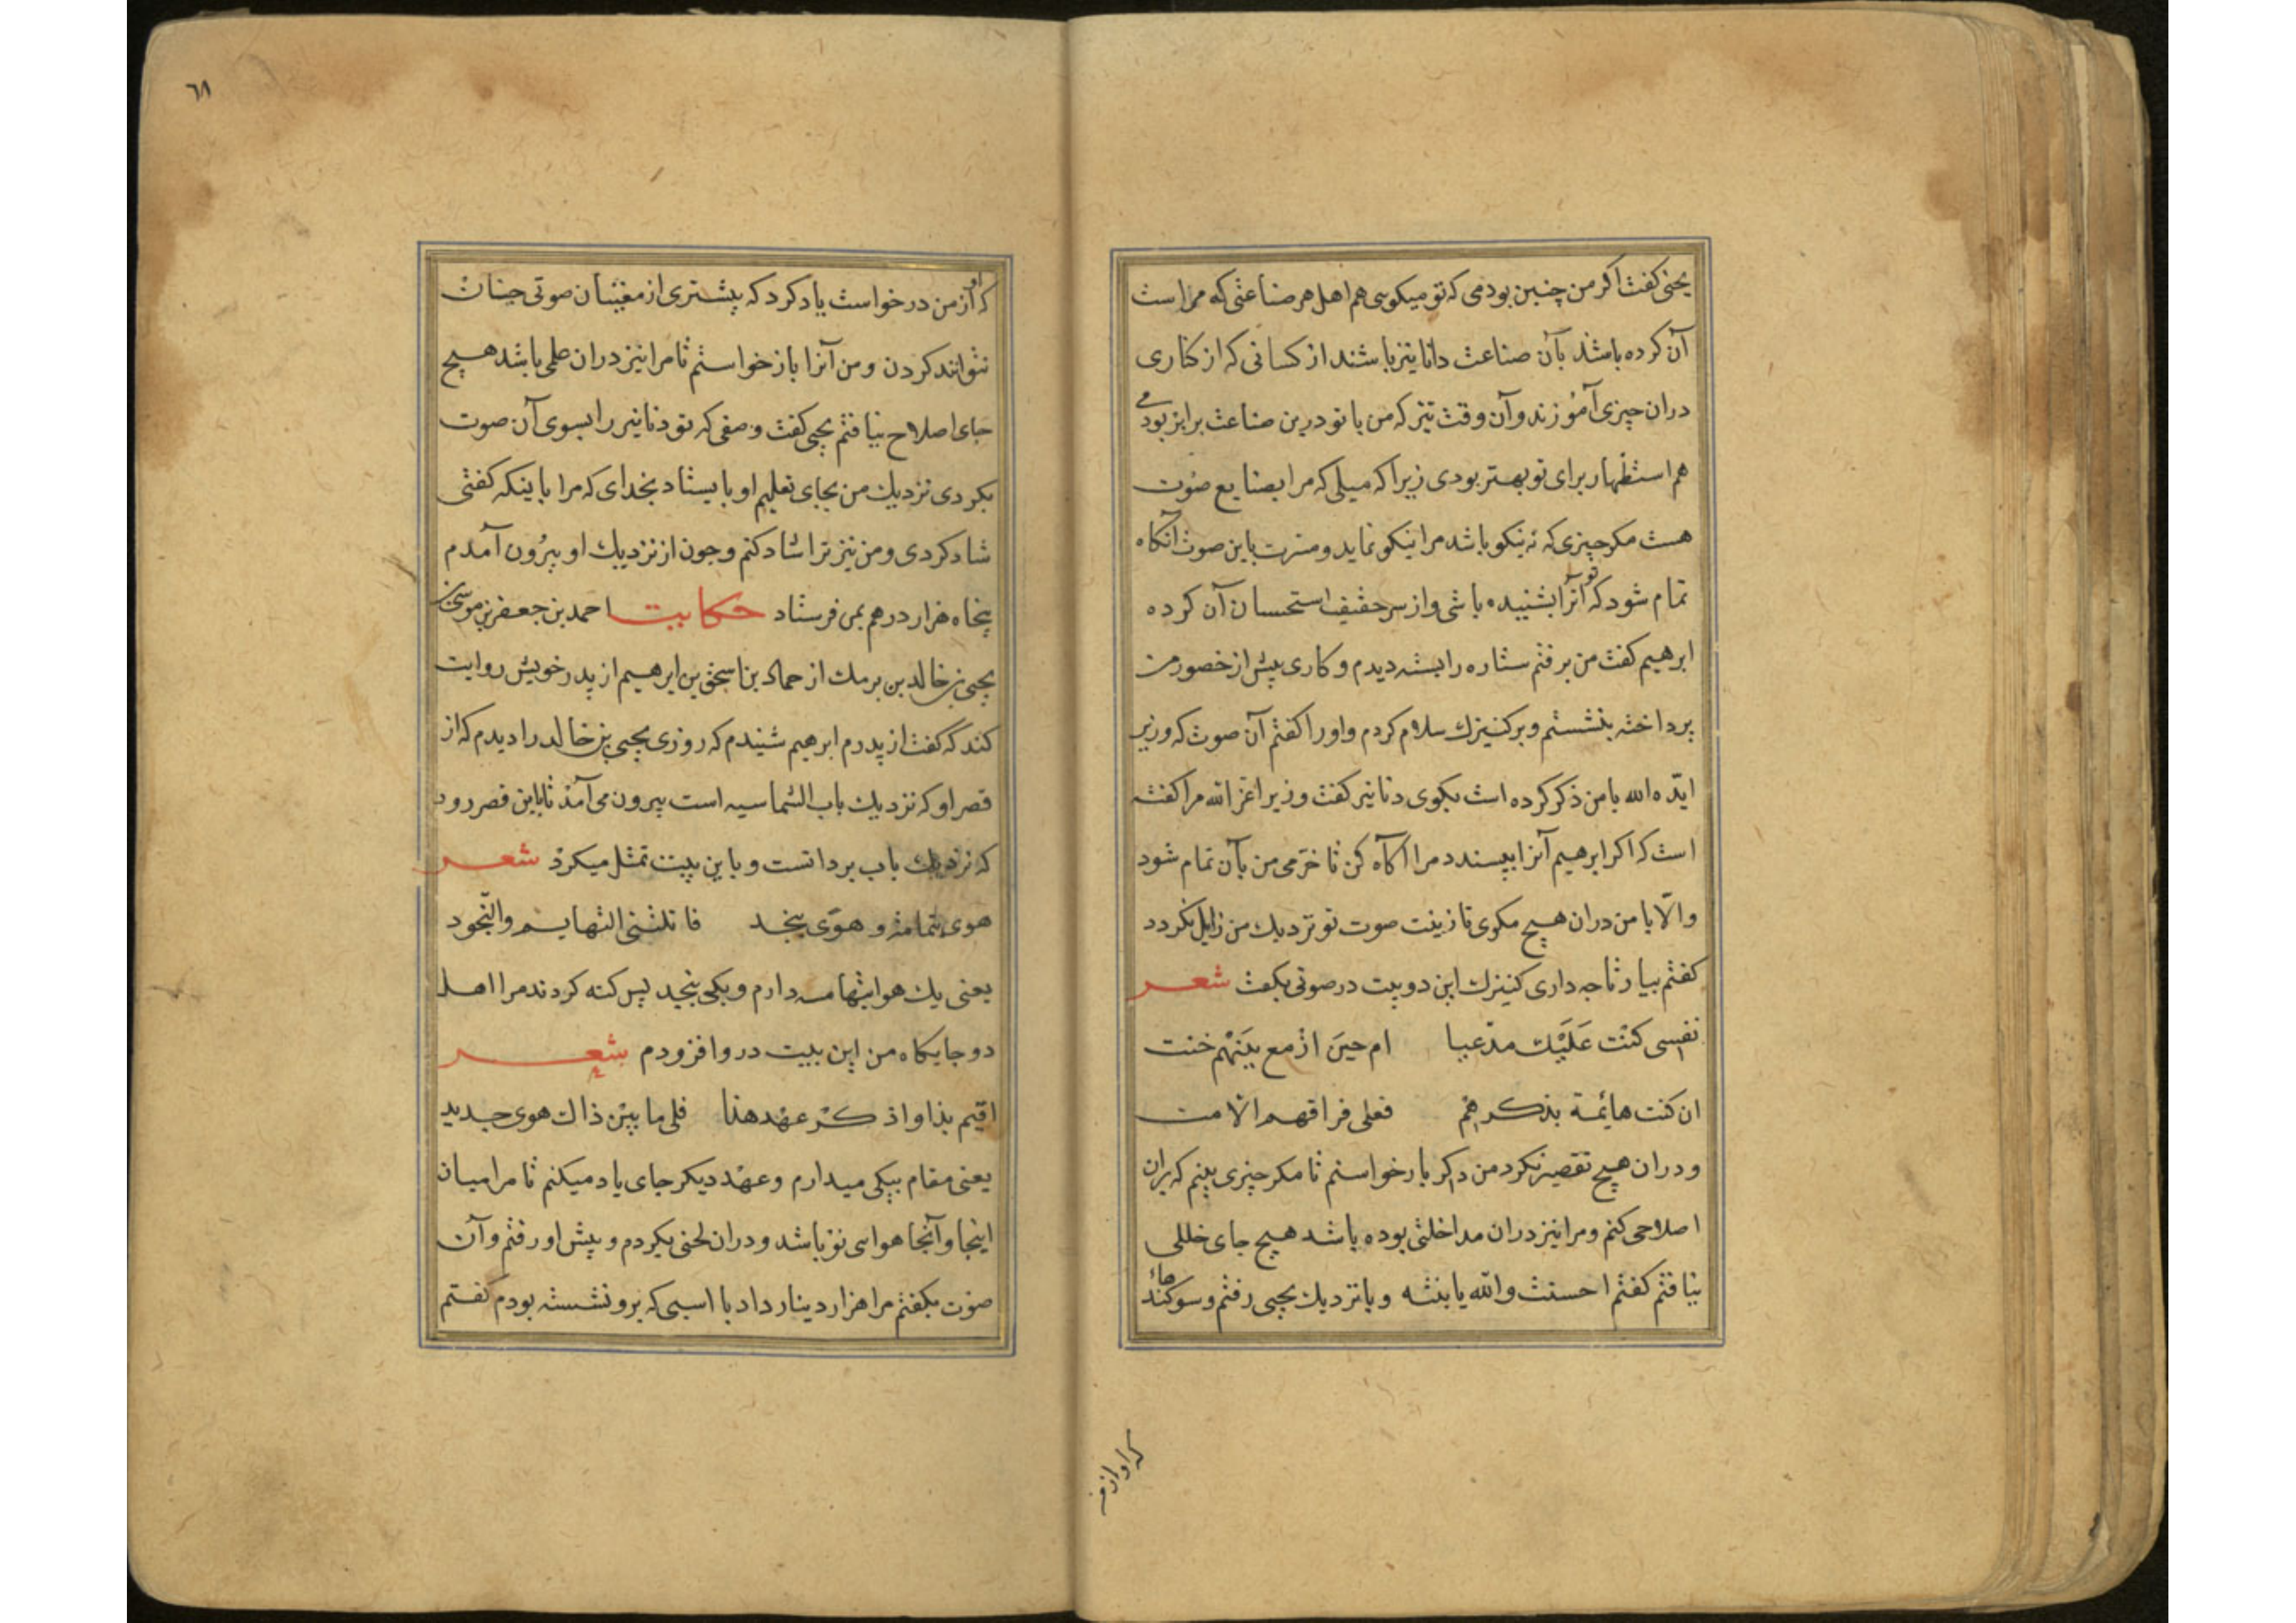 یحیی گفت اگر من چنین بودمی که تو میکوی هم اهل هر صناعتی که مراست
آن کرده باشد بآن صناعت داناتر باشند از کسانی که از کناری
دران چیزی آموزند و آن وقت نیز که من با تو درین صناعت برابر بودمی
هم استظهار برای تو بهتر بودی زیرا که میلی که مرا بصنایع صوت
هست مکر چیزی که نه نیکو باشد مرا نیکو نماید و مسرت باین صوت آنکاه
تمام شود که تو آنرا بشنیده باشی و از سر حقیقت استحسان آن کرده
ابرهیم کفت من برفتم ستاره را بسته دیدم و کاری پیش از حضور من
پرداخته بنشستم و بر کنیزک سلام کردم و او را کفتم آن صوت که وزیر
ایّده الله با من ذکر کرده است بکوی دنانیر کفت وزیر اعز الله مرا کفته
است که اکر ابرهیم آنرا بپسندد مرا آکاه کن تا خرّمی من بآن تمام شود
والّا با من دران هیچ مکوی تا زینت صوت تو نزدیک من زایل نکردد
کفتم بیار تا چه داری کنیزک این دو بیت در صوتی بکفت شعر
نفسی کنت علیک مدّعیا ام حین ازمع بینهم خنت
ان کنت هائمة بذکرهم فعلی فراقهم الا مت
و دران هیچ تقصیر نکرد من دکر بار خواستم تا مکر چیزی بینم که بران
اصلاحی کنم و مرا نیز دران مداخلتی بوده باشد هیچ جای خللی
نیافتم کفتم احسنت والله یا بنته و با نزدیک یحیی رفتم و سوکندها
که او از من
٦٨
که او از من درخواست یاد کرد که بیشتری از مغنیان صوتی چنان
نتوانند کردن و من آنرا باز خواستم تا مرا نیز دران عملی باشد هیچ
جای اصلاح نیافتم یحیی کفت وصفی که تو دنانیر را بسوی آن صوت
بکردی نزدیک من بجای تعلیم او بایستاد بخدای که مرا باینکه کفتی
شاد کردی و من نیز ترا شاد کنم و چون از نزدیک او بیرون آمدم
پنجاه هزار درهم بمن فرستاد حکایت احمد بن جعفر بن موسی بن
یحیی بن خالد بن برمک از حماد بن اسحق بن ابرهیم از پدر خویش روایت
کند که کفت از پدرم ابرهیم شنیدم که روزی یحیی بن خالد را دیدم که از
قصر او که نزدیک باب الشماسیه است بیرون می آمد تا باین قصر رود
که نزدیک باب بردانست و باین بیت تمثل میکرد شعر
هوی بتهامة و هوّی بنجد فاتلتنی التهایم والنجود
یعنی یک هوا بتهامه دارم و یکی بنجد پس کنه کردند مرا اهل
دو جایکاه من این بیت درو افزودم شعر
اقیم بذا و اذکر عهد هنا فلی ما بین ذاک هوی جدید
یعنی مقام بیکی میدارم و عهد دیکر جای یاد میکنم تا مرا میان
اینجا و آنجا هوایی نو باشد و دران لحنی بکردم و پیش او رفتم و آن
صوت بکفتم مرا هزار دینار داد با اسبی که برو نشسته بودم کفتم